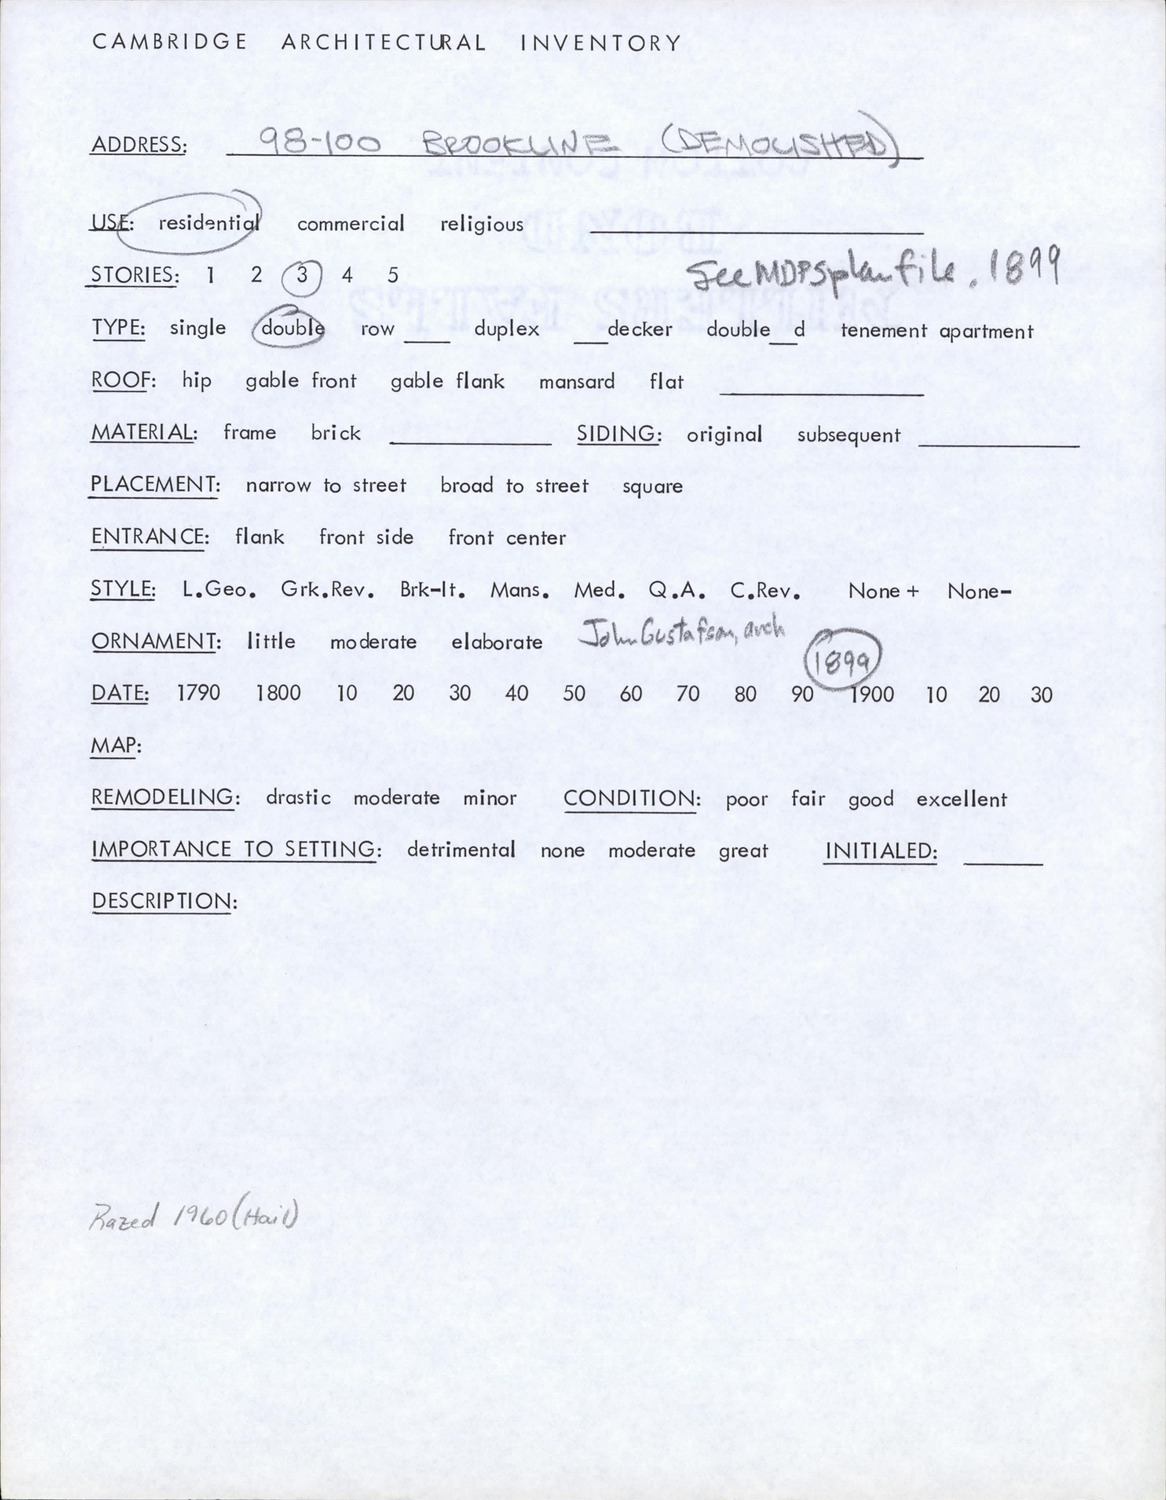 CAMBRIDGE ARCHITECTURAL INVENTORY
ADDRESS: 98-100 BROOKLINE (DEMOLISHED)
USE: residential commercial religious
STORIES: 1 2 3 4 5 See MDPS plan file, 1899
TYPE: single double row ___ duplex ___decker double___d tenement apartment
ROOF: hip gable front gable flank mansard flat
MATERIAL: frame brick ___ SIDING: original subsequent ___
PLACEMENT: narrow to street broad to street square
ENTRANCE: flank front side front center
STYLE: L.Geo. Grk.Rev. Brk-It. Mans. Med. Q.A. C.Rev. None + None-
ORNAMENT: little moderate elaborate John Gustafson, arch 1899
DATE: 1790 1800 10 20 30 40 50 60 70 80 90 1900 10 20 30
MAP:
REMODELING: drastic moderate minor CONDITION: poor fair good excellent
IMPORTANCE TO SETTING: detrimental none moderate great INITIALED: ___
DESCRIPTION:
Razed 1960 (Hail)